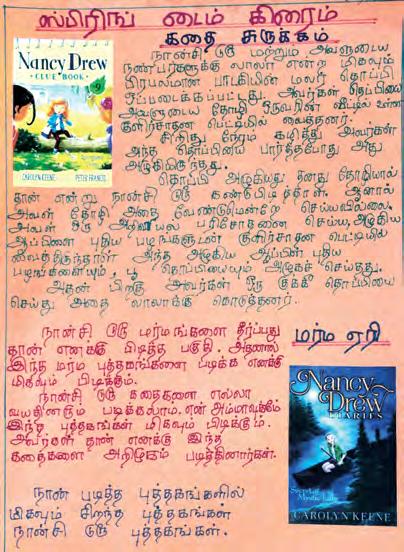 ஸ்பிரிங் டைம் கிரைம்
கதை சுருக்கம்
Nancy Drew
CLUE BOOK
#9
CAROLYN KEENE
PETER FRANCIS
நான்சி டுரு மற்றும் அவளுடைய
நண்பர்களுக்கு லாலா என்ற மிகவும்
பிரபலமான பாடகியின் மலர் தொப்பி
ஒப்படைக்கப்பட்டது. அவர்கள் தொப்பியை
அவளுடைய தோழி ஒருவரின் வீட்டில் உள்ள
குளிர்சாதன பெட்டியில் வைத்தனர்.
சிறிது நேரம் கழித்து அவர்கள்
அந்த தொப்பியை பார்த்தபோது அது
அழுகியிருந்தது.
தொப்பி அழுகியது தனது தோழியால்
தான் என்று நான்சி டுரு கண்டுபிடித்தாள். ஆனால்
அவள் தோழி அதை வேண்டுமென்றே செய்யவில்லை.
அவள் ஒரு அறிவியல் பரிசோதனை செய்ய, அழுகிய
ஆப்பிளை புதிய பழங்களுடன் குளிர்சாதன பெட்டியில்
வைத்திருந்தாள் அந்த அழுகிய ஆப்பிள் புதிய
பழங்களையும், பூ தொப்பியையும் அழுகச் செய்தது.
அதன் பிறகு அவர்கள் ஒரு குக்கீ தொப்பியை
செய்து அதை லாலாக்கு கொடுத்தனர்.
நான்சி டுரு மர்மங்களை தீர்ப்பது
தான் எனக்கு பிடித்த பகுதி. அதனால்
இந்த மர்ம புத்தகங்களை படிக்க எனக்கு
மிகவும் பிடிக்கும்.
நான்சி டுரு கதைகளை எல்லா
வயதினரும் படிக்கலாம். என் அம்மாவுக்கும்
இந்த புத்தகங்கள் மிகவும் பிடிக்கும்.
அவர்கள் தான் எனக்கு இந்த
கதைகளை அறிமுகம் படுத்தினார்கள்.
நான் படித்த புத்தகங்களில்
மிகவும் சிறந்த புத்தகங்கள்
நான்சி டுரு புத்தகங்கள்.
மர்ம ஏரி
Nancy
Drew
DIARIES
Secret at
Mystic Lake
CAROLYN KEENE